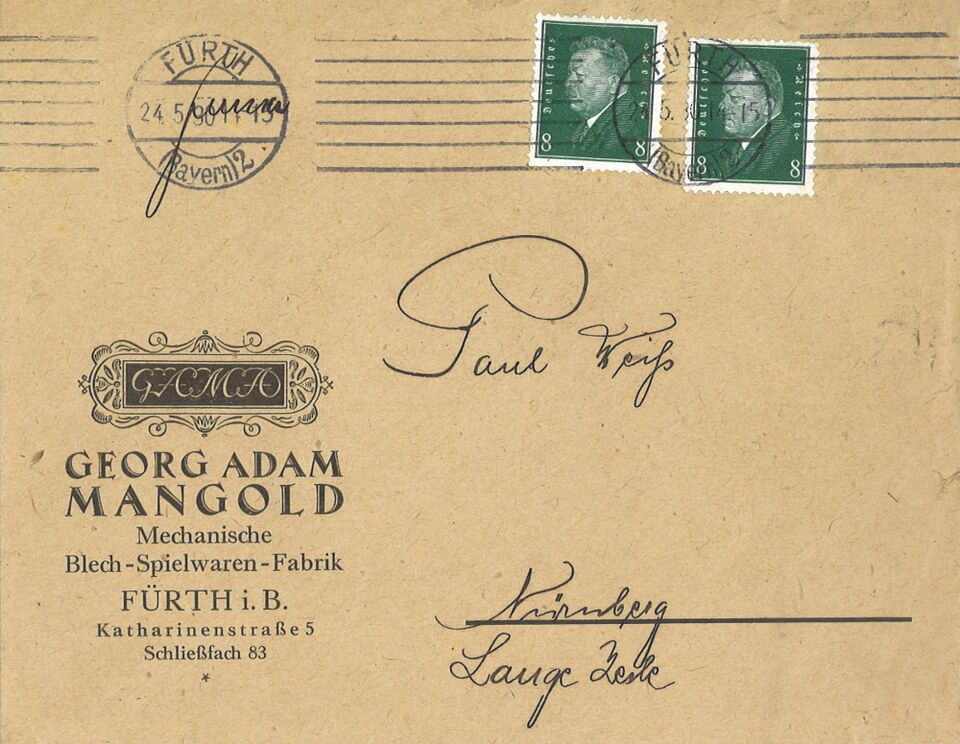 FÜRTH
24.5.30 14-15
(Bayern) 2
Deutsches Reich
8 8
FÜRTH
24.5.30 14-15
(Bayern) 2
Deutsches Reich
8 8
Paul Weiß
GAMA
GEORG ADAM
MANGOLD
Mechanische
Blech-Spielwaren-Fabrik
FÜRTH i. B.
Katharinenstraße 5
Schließfach 83
*
Nürnberg
Lange Zeile